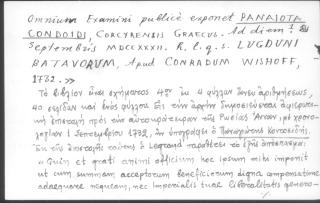 Omnium Examini publicè exponet PANAIOTA
CONDOIDI, CORCYRENSIS GRAECUS. Ad diem
Septembris MDCCXXXII. H. l. q. s. LUGDUNI
BATAVORUM, Apud CONRADUM WISHOFF,
1732.»
Τὸ βιβλίον εἶναι σχήματος 4ου ἐκ 4 φύλλων ἄνευ ἀριθμήσεως,
40 σελίδων καὶ ἑνὸς φύλλου. Εἰς τὴν ἀρχὴν δημοσιεύεται ἀφιερωτικὴ
ἐπιστολὴ πρὸς τὴν αὐτοκράτειραν τῆς Ρωσίας Ἄνναν, μὲ χρονο-
λογίαν 1 Σεπτεμβρίου 1732, ἣν ὑπογράφει ὁ Παναγιώτης Κονδοείδης.
Ἐκ τῆς ἐπιστολῆς ταύτης ὁ Legrand παραθέτει τὸ ἑξῆς ἀπόσπασμα:
«Quin et grati animi officium hoc ipsum mihi imponit
ut cum summam acceptorum beneficiorum digna compensatione
adaequare nequeam, nec Imperialis tuae liberalitatis genero-